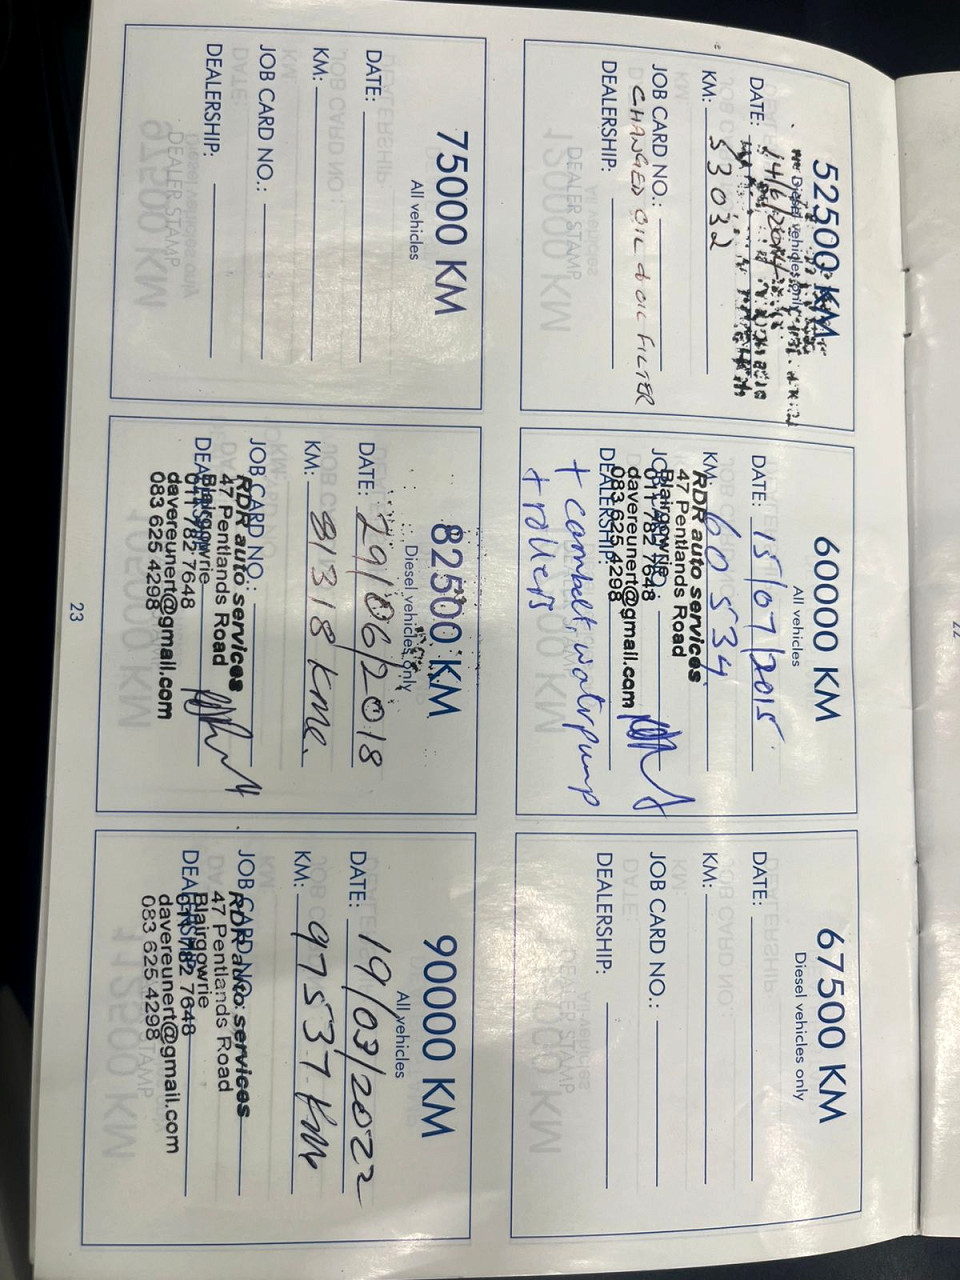 52500 KM
Diesel vehicles only
DATE: 14/6/2014
KM: 53032
JOB CARD NO.:
CHANGED OIL & OIL FILTER
DEALERSHIP:
DEALER STAMP
60000 KM
All vehicles
DATE: 15/07/2015
KM: 60534
RDR auto services
47 Pentlands Road
JOB CARD NO.:
Blairgowrie
011 782 7648
davereunert@gmail.com
DEALERSHIP:
083 625 4298
+ cambelt, waterpump
+ rollers
67500 KM
Diesel vehicles only
DATE:
KM:
JOB CARD NO.:
DEALERSHIP:
DEALER STAMP
75000 KM
All vehicles
DATE:
KM:
JOB CARD NO.:
DEALERSHIP:
DEALER STAMP
82500 KM
Diesel vehicles only
DATE: 29/06/2018
KM: 81318 kms.
JOB CARD NO.:
RDR auto services
47 Pentlands Road
DEALERSHIP:
Blairgowrie
011 782 7648
davereunert@gmail.com
083 625 4298
90000 KM
All vehicles
DATE: 19/03/2022
KM: 97537 km
JOB CARD NO.:
RDR auto services
47 Pentlands Road
Blairgowrie
DEALERSHIP:
011 782 7648
davereunert@gmail.com
083 625 4298
23
22